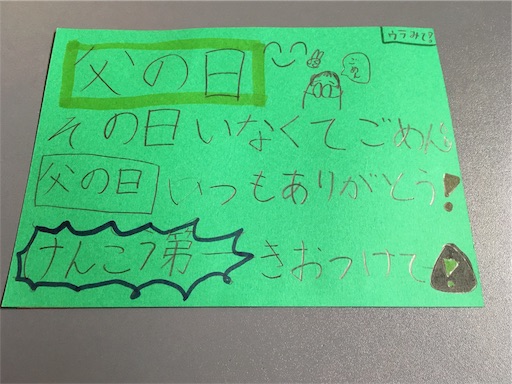 ウラみて?
父の日
その日いなくてごめん
父の日 いつもありがとう!
けんこう第一 きおつけて